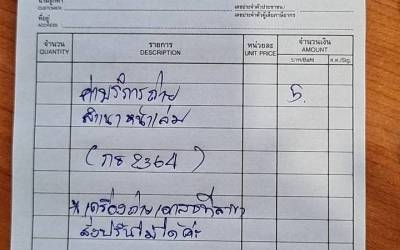 นามลูกค้า
CUSTOMER
เลขประจำตัวประชาชน/
เลขประจำตัวผู้เสียภาษีอากร
ที่อยู่
ADDRESS
จำนวน รายการ หน่วยละ จำนวนเงิน
QUANTITY DESCRIPTION UNIT PRICE AMOUNT
บาท/Baht ส.ต./Stg.
ค่าบริการถ่าย 5.
สำเนาหน้าเล่ม
(กธ 2364)
* เครื่องถ่ายเอกสาร